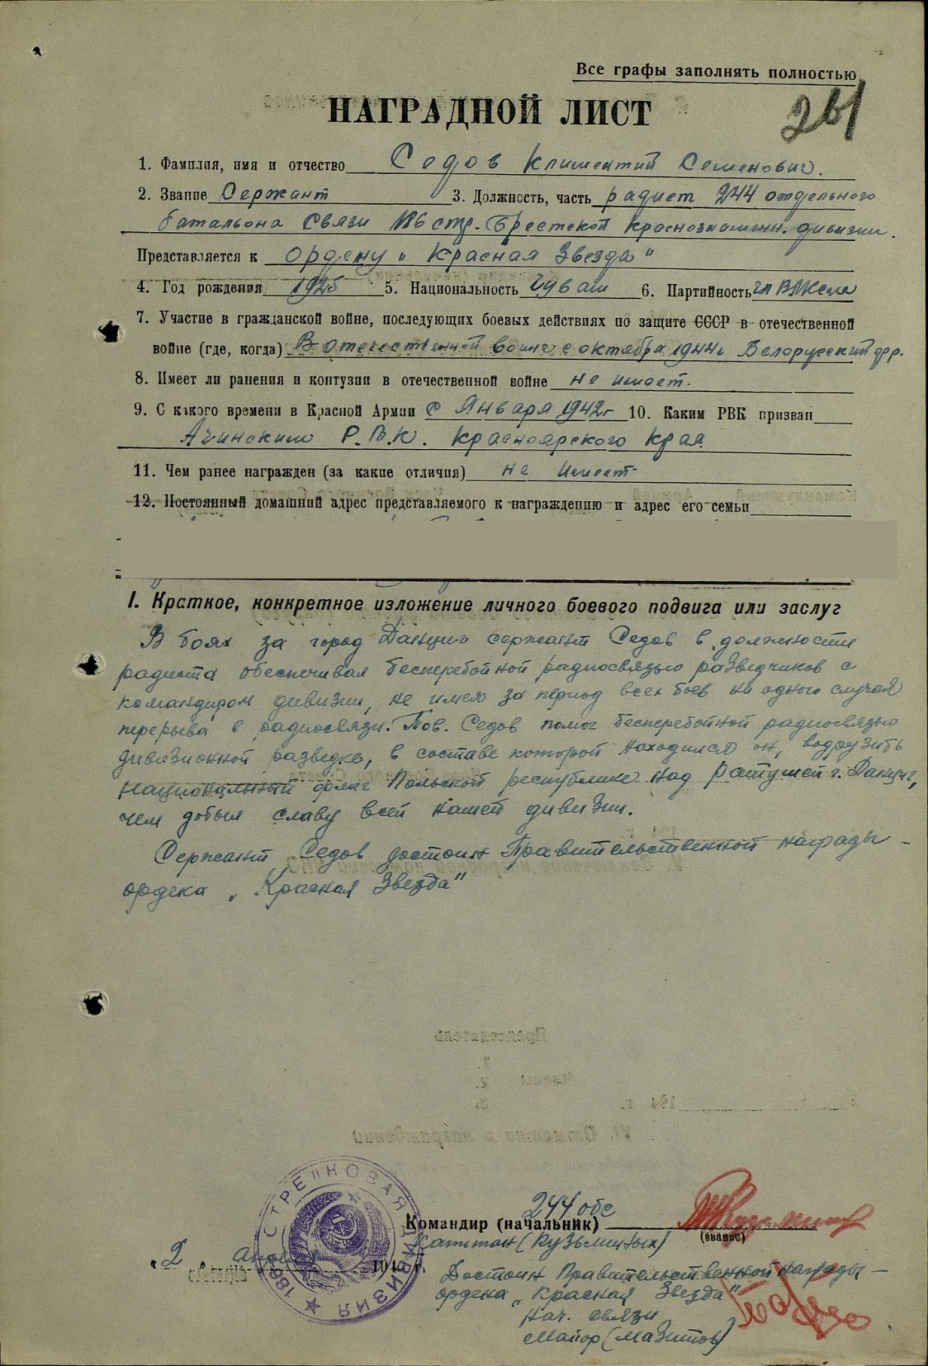 Все графы заполнять полностью
НАГРАДНОЙ ЛИСТ
261
1. Фамилия, имя и отчество Седов Климентий Семенович.
2. Звание Сержант 3. Должность, часть радист 244 отдельного
батальона связи 186 стр. Брестской краснознаменн. дивизии.
Представляется к ордену „Красная Звезда"
4. Год рождения 1925 5. Национальность чуваш 6. Партийность чл ВЛКСМ
7. Участие в гражданской войне, последующих боевых действиях по защите СССР в отечественной
войне (где, когда) В отечественной войне с октября 1944г Белорусский фр.
8. Имеет ли ранения и контузии в отечественной войне не имеет.
9. С какого времени в Красной Армии с Января 1942г 10. Каким РВК призван
Ачинским Р.В.К. Красноярского края
11. Чем ранее награжден (за какие отличия) не имеет
12. Постоянный домашний адрес представляемого к награждению и адрес его семьи
I. Краткое, конкретное изложение личного боевого подвига или заслуг
В боях за город Данциг сержант Седов в должности
радиста обеспечивал бесперебойной радиосвязью разведчиков с
командиром дивизии, не имея за период всех боев ни одного случая
перерыва в радиосвязи. Тов. Седов помог бесперебойной радиосвязью
дивизионной разведке, в составе которой находился он, водрузить
национальный флаг Польской республики над Ратушей г. Данциг,
чем добыл славу всей нашей дивизии.
Сержант Седов достоин Правительственной награды –
ордена „Красная Звезда"
244 обс
Командир (начальник)
(звание)
Капитан (Кузьминых)
"2" апреля 194 г.
186 СТРЕЛКОВАЯ ДИВИЗИЯ
Достоин Правительственной награды –
ордена „Красная Звезда"
Нач. связи
Майор (Мазитов)